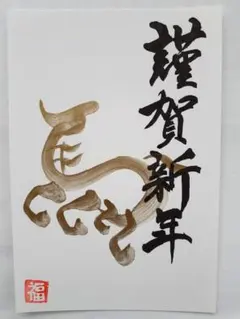 謹賀新年
馬
福